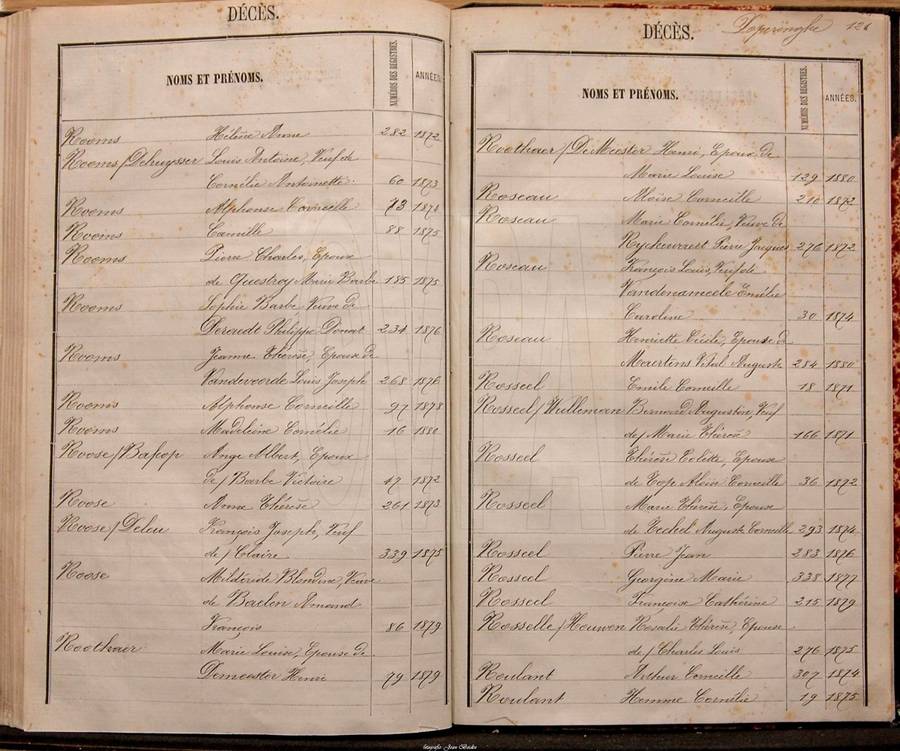 DÉCÈS.
NOMS ET PRÉNOMS. NUMÉROS DES REGISTRES. ANNÉES.
Rooms Hélène Anne 282 1872
Rooms/Dehuysser Louis Antoine, Veuf de
Cornélie Antoinette 60 1873
Rooms Alphonse Corneille 73 1873
Rooms Camille 88 1875
Rooms Pierre Charles, Epoux
de Questroy Marie Barbe 185 1875
Rooms Sophie Barbe Veuve de
Deraedt Philippe Donat 234 1876
Rooms Jeanne Thérèse, Epouse de
Vandevoorde Louis Joseph 268 1876
Rooms Alphonse Corneille 97 1878
Rooms Madeleine Cornélie 16 1880
Roose/Bafcop Ange Albert, Epoux
de/ Barbe Victoire 47 1872
Roose Anne Thérèse 261 1873
Roose/Deleu François Joseph, Veuf
de/ Claire 339 1875
Roose Blondine, Veuve
de Baelen Amand
François 86 1879
Roothaer Marie Louise, Epouse de
Demeester Henri 79 1879
DÉCÈS. Poperinghe 126
NOMS ET PRÉNOMS. NUMÉROS DES REGISTRES. ANNÉES.
Roothaer/DeMeester Henri, Epoux de
Marie Louise 129 1880
Roseau Aloïse Corneille 210 1872
Roseau Marie Cornélie, Veuve de
Ryckewaert Pierre Jacques 276 1872
Roseau François Louis, Veuf de
Vandenameele Emélie
Caroline 30 1874
Roseau Henriette Cécile, Epouse de
Maertens Vital Auguste 284 1880
Rosseel Emile Corneille 18 1871
Rosseel/Wulleman Bernard Augustin, Veuf
de/ Marie Thérèse 166 1871
Rosseel Thérèse Colette, Epouse
de Top Aloïs Corneille 36 1872
Rosseel Marie Thérèse, Epouse
de Techel Auguste Corneille 293 1874
Rosseel Pierre Jean 283 1876
Rosseel Georgine Marie 338 1877
Rosseel Françoise Cathérine 215 1879
Rosselle/Houwen Rosalie Thérèse, Epouse
de/ Charles Louis 276 1875
Roulant Arthur Corneille 307 1874
Roulant Homme Cornélie 19 1875